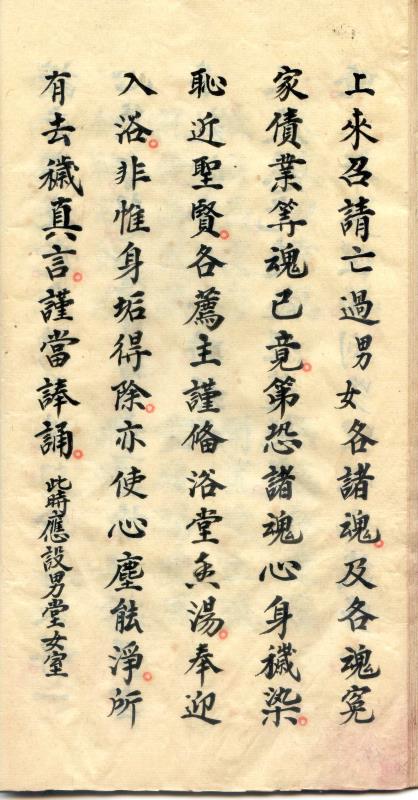 上來召請亡過男女各諸魂。及各魂冤
家債業等魂已竟。第恐諸魂心身穢染。
恥近聖賢。各薦主謹俻浴堂香湯。奉迎
入浴。非惟身垢得除。亦使心塵能淨。所
有去穢真言。謹當諱誦。此時應設男堂女室